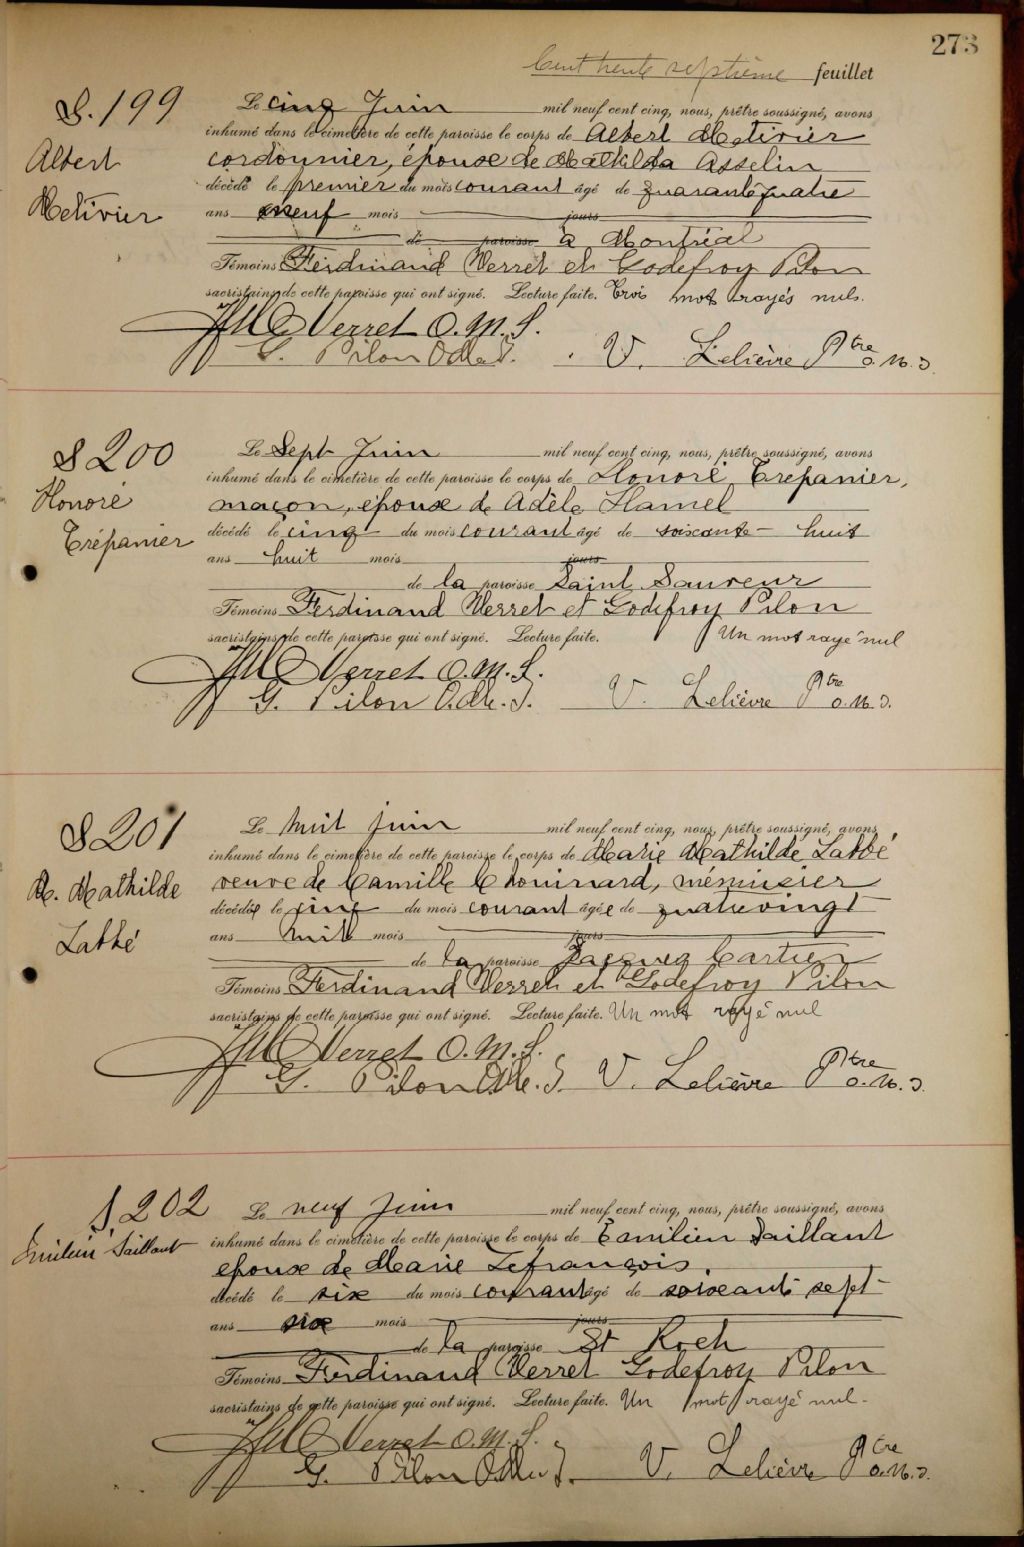 273
Cent trente septième feuillet
S. 199
Albert
Metivier
Le cinq Juin mil neuf cent cinq, nous, prêtre soussigné, avons
inhumé dans le cimetière de cette paroisse le corps de Albert Metivier
cordonnier, époux de Mathilda Asselin
décédé le premier du mois courant âgé de quarante quatre
ans neuf mois jours
de paroisse à Montréal
Témoins Ferdinand Verret et Godefroy Pilon
sacristains de cette paroisse qui ont signé. Lecture faite. Trois mots rayés nuls.
Verret O.M.I.
G. Pilon O.M.I. V. Lelièvre Ptre O.M.I.
S 200
Honoré
Trépanier
Le Sept Juin mil neuf cent cinq, nous, prêtre soussigné, avons
inhumé dans le cimetière de cette paroisse le corps de Honoré Trepanier,
maçon, époux de Adèle Hamel
décédé le cinq du mois courant âgé de soixante - huit
ans huit mois jours
de la paroisse Saint Sauveur
Témoins Ferdinand Verret et Godefroy Pilon
sacristains de cette paroisse qui ont signé. Lecture faite. Un mot rayé nul
Verret O.M.I.
G. Pilon O.M.I. V. Lelièvre Ptre O.M.I.
S 201
M. Mathilde
Labbé
Le huit juin mil neuf cent cinq, nous, prêtre soussigné, avons
inhumé dans le cimetière de cette paroisse le corps de Marie Mathilde Labbé
veuve de Camille Chouinard, ménuisier
décédée le cinq du mois courant âgée de quatrevingt
ans huit mois jours
de la paroisse Jacques Cartier
Témoins Ferdinand Verret et Godefroy Pilon
sacristains de cette paroisse qui ont signé. Lecture faite. Un mot rayé nul
Verret O.M.I.
G. Pilon O.M.I. V. Lelièvre Ptre O.M.I.
S. 202
Emilien Saillant
Le neuf Juin mil neuf cent cinq, nous, prêtre soussigné, avons
inhumé dans le cimetière de cette paroisse le corps de Emilien Saillant
epoux de Marie Lefrançois.
décédé le six du mois courant âgé de soixante sept
ans six mois jours
de la paroisse St Roch
Témoins Ferdinand Verret Godefroy Pilon
sacristains de cette paroisse qui ont signé. Lecture faite. Un mot rayé nul.
Verret O.M.I.
G. Pilon O.M.I. V. Lelièvre Ptre O.M.I.